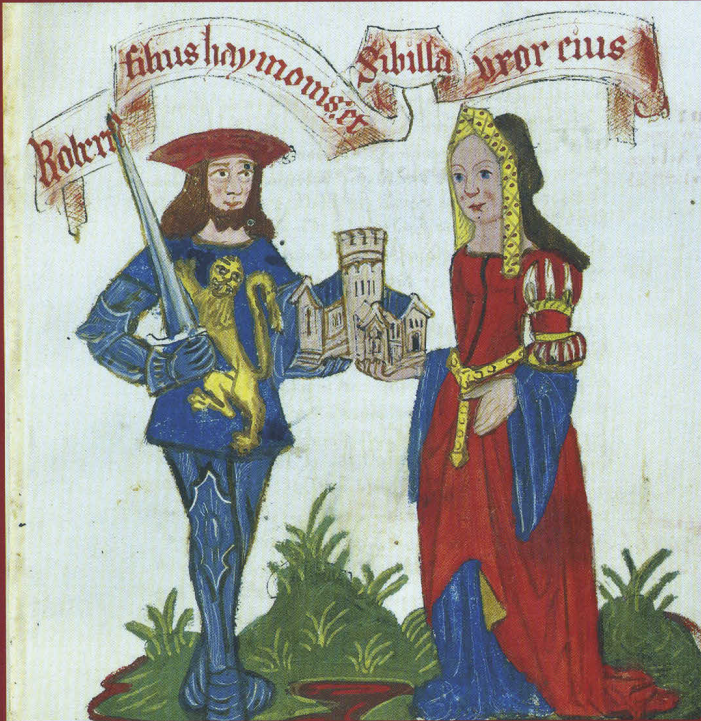 Robert filius haymonis et Sibilla uxor eius